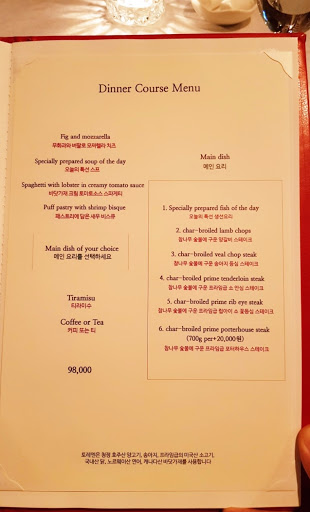 Dinner Course Menu
Fig and mozzarella
무화과와 버팔로 모짜렐라 치즈
Specially prepared soup of the day
오늘의 특선 스프
Spaghetti with lobster in creamy tomato sauce
바닷가재 크림 토마토소스 스파게티
Puff pastry with shrimp bisque
페스트리에 담은 새우 비스큐
Main dish of your choice
메인 요리를 선택하세요
Tiramisu
티라미수
Coffee or Tea
커피 또는 티
98,000
Main dish
메인 요리
1. Specially prepared fish of the day
오늘의 특선 생선요리
2. char-broiled lamb chops
참나무 숯불에 구운 양갈비 스테이크
3. char-broiled veal chop steak
참나무 숯불에 구운 송아지 등심 스테이크
4. char-broiled prime tenderloin steak
참나무 숯불에 구운 프라임급 소 안심 스테이크
5. char-broiled prime rib eye steak
참나무 숯불에 구운 프라임급 립아이 소 꽃등심 스테이크
6. char-broiled prime porterhouse steak
(700g per+20,000원)
참나무 숯불에 구운 프라임급 포터하우스 스테이크
토레엔은 청정 호주산 양고기, 송아지, 프라임급의 미국산 소고기,
국내산 닭, 노르웨이산 연어, 캐나다산 바닷가재를 사용합니다